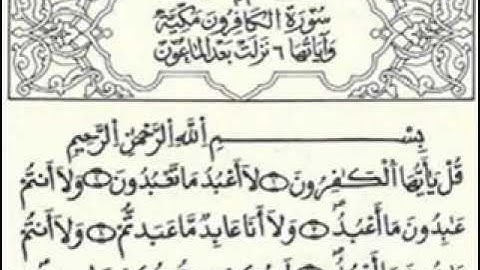 سورة الكافرون مكية
وآياتها ٦ نزلت بعد الماعون
بِسْمِ اللَّهِ الرَّحْمَٰنِ الرَّحِيمِ
قُلْ يَٰٓأَيُّهَا الْكَٰفِرُونَ ١ لَآ أَعْبُدُ مَا تَعْبُدُونَ ٢ وَلَآ أَنتُمْ
عَٰبِدُونَ مَآ أَعْبُدُ ٣ وَلَآ أَنَا۠ عَابِدٌ مَّا عَبَدتُّمْ ٤ وَلَآ أَنتُمْ